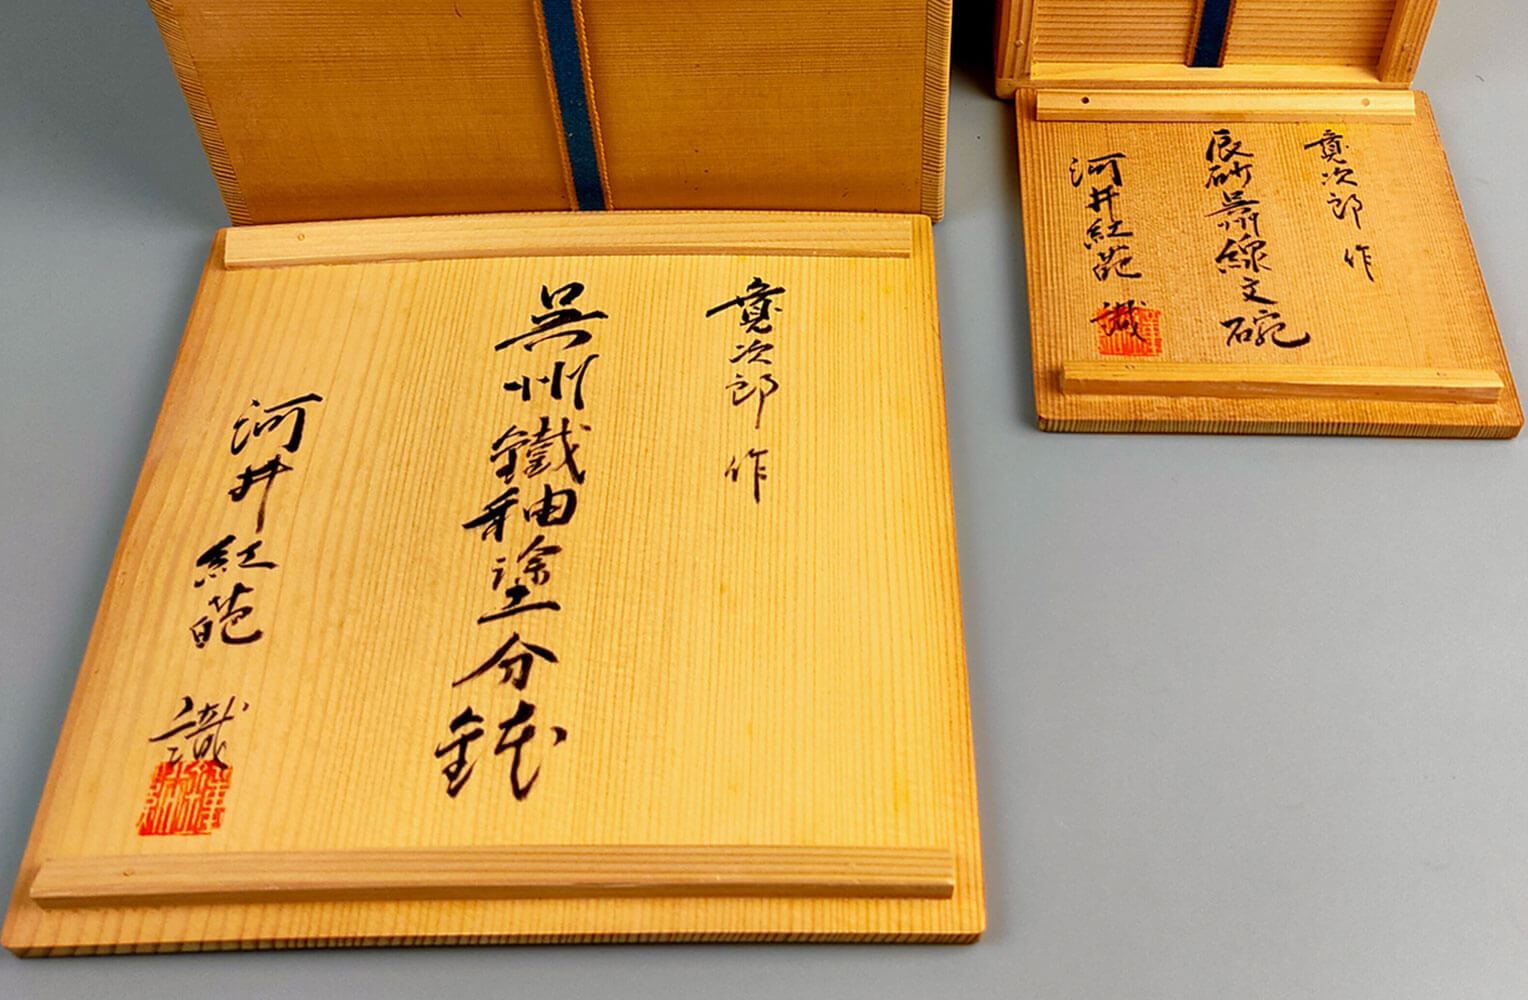 寛次郎 作
呉州鐵釉塗分鉢
河井紅葩 識
寛次郎 作
辰砂呉州線文碗
河井紅葩 識